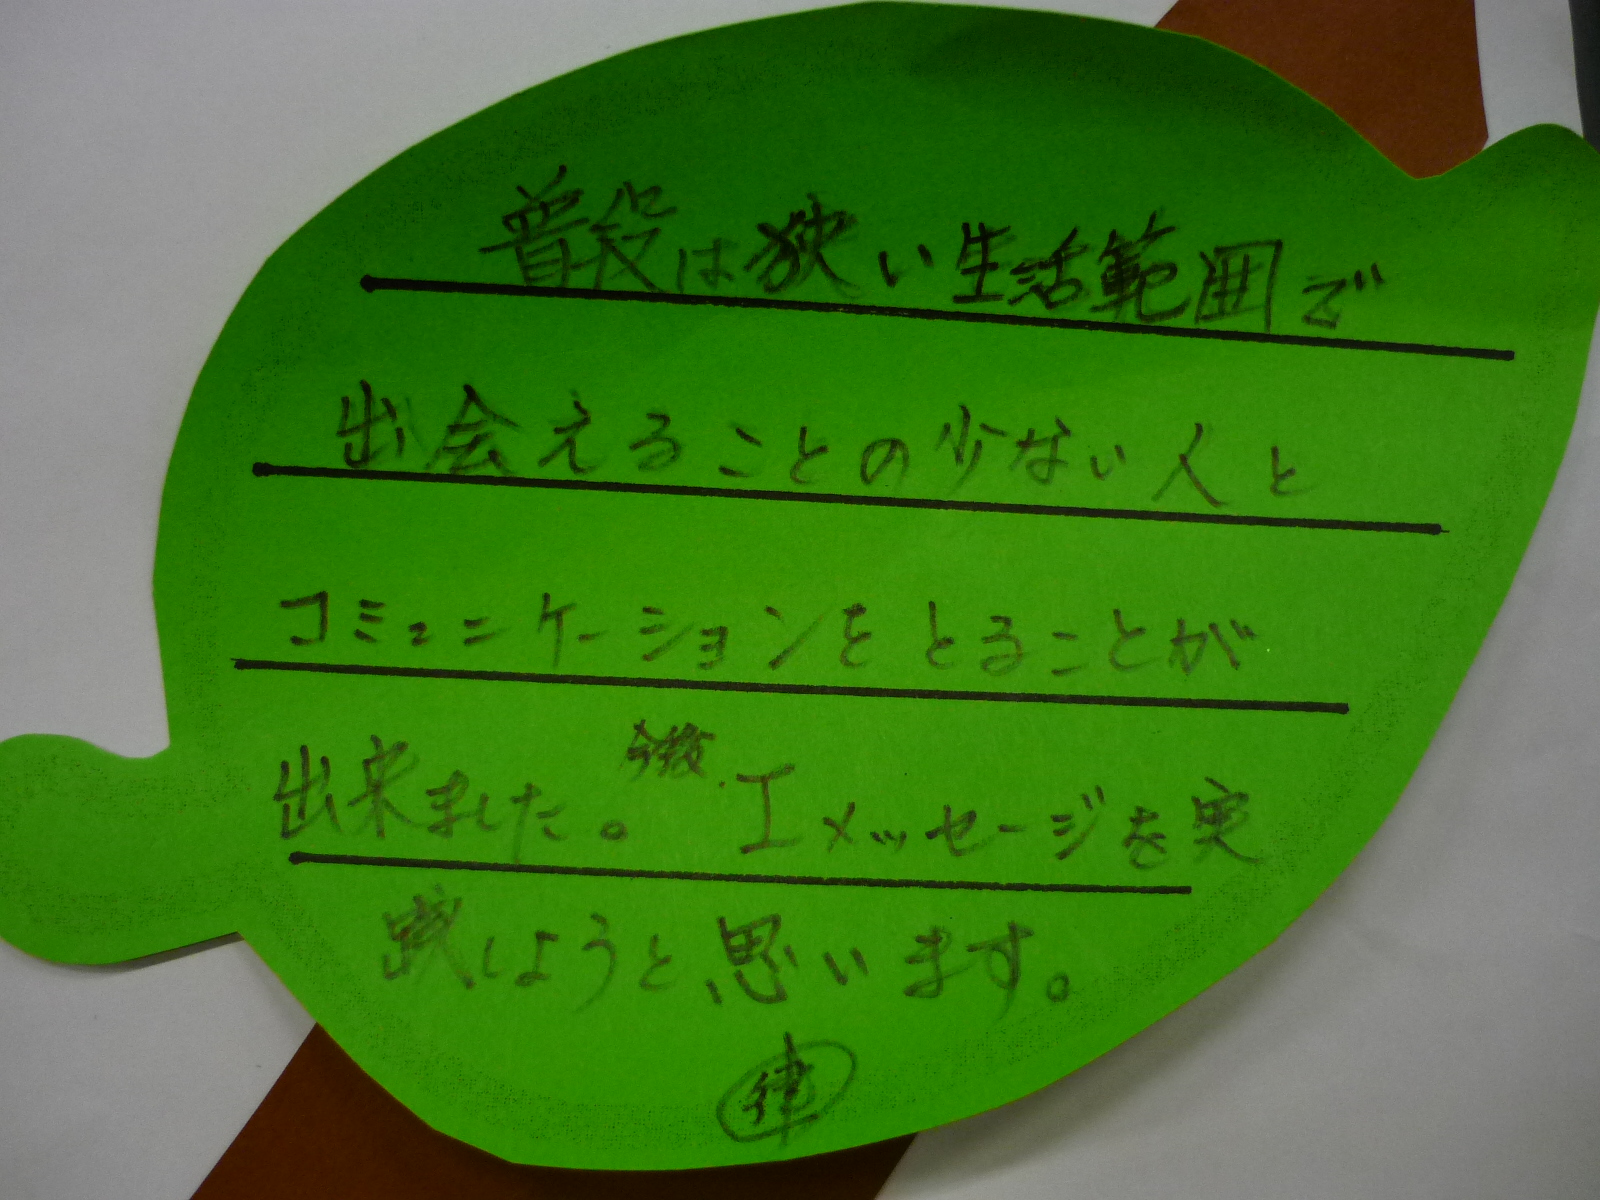 普段は狭い生活範囲で
出会えることの少ない人と
コミュニケーションをとることが
出来ました。今後、Iメッセージを実
践しようと思います。
律